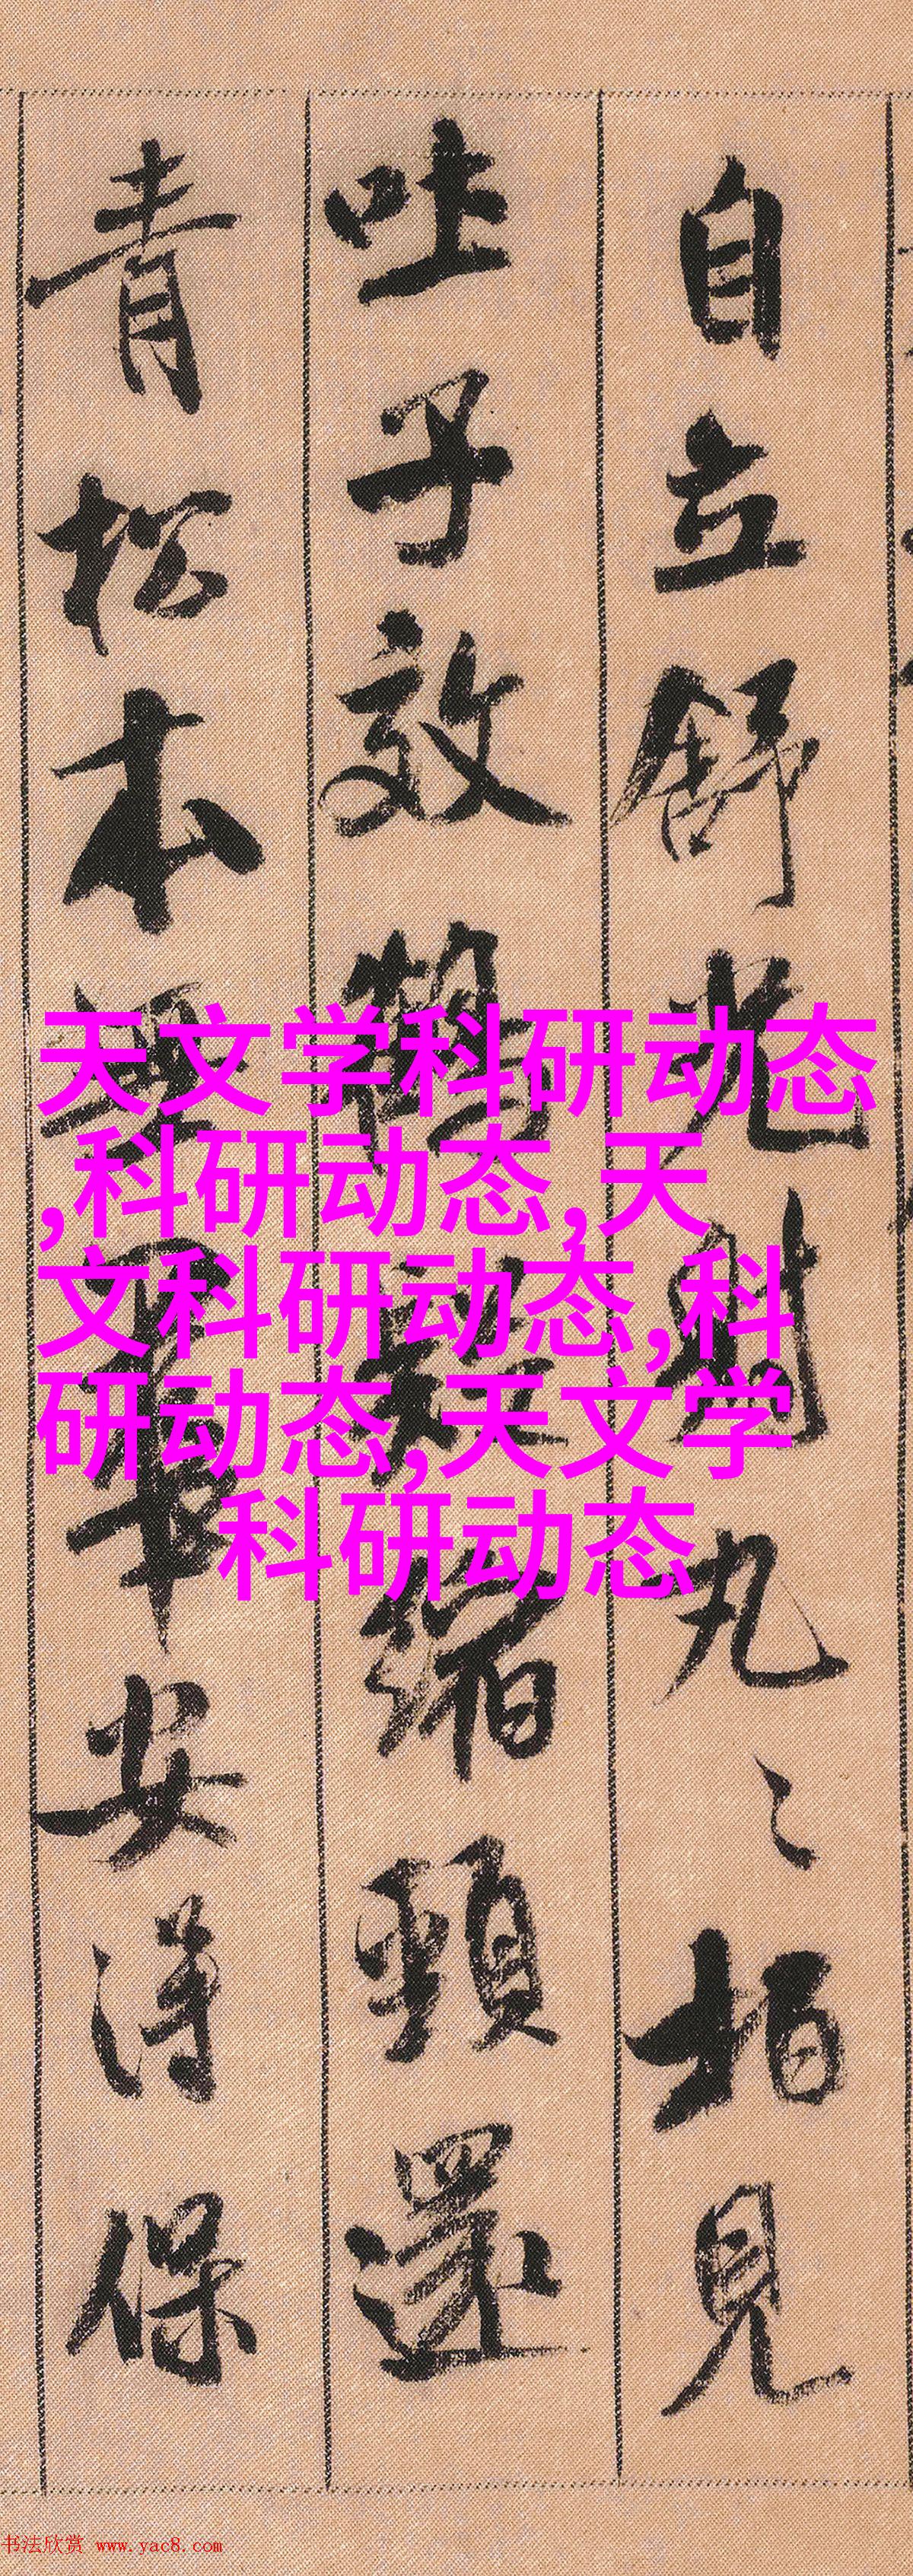 自立舒光射丸〻柏見
吐子效鶴疑縮頸還
青松本無華安得保
天文学科研动态
,科研动态,天
文科研动态,科
研动态,天文学
科研动态
书法欣赏 www.yac8.com